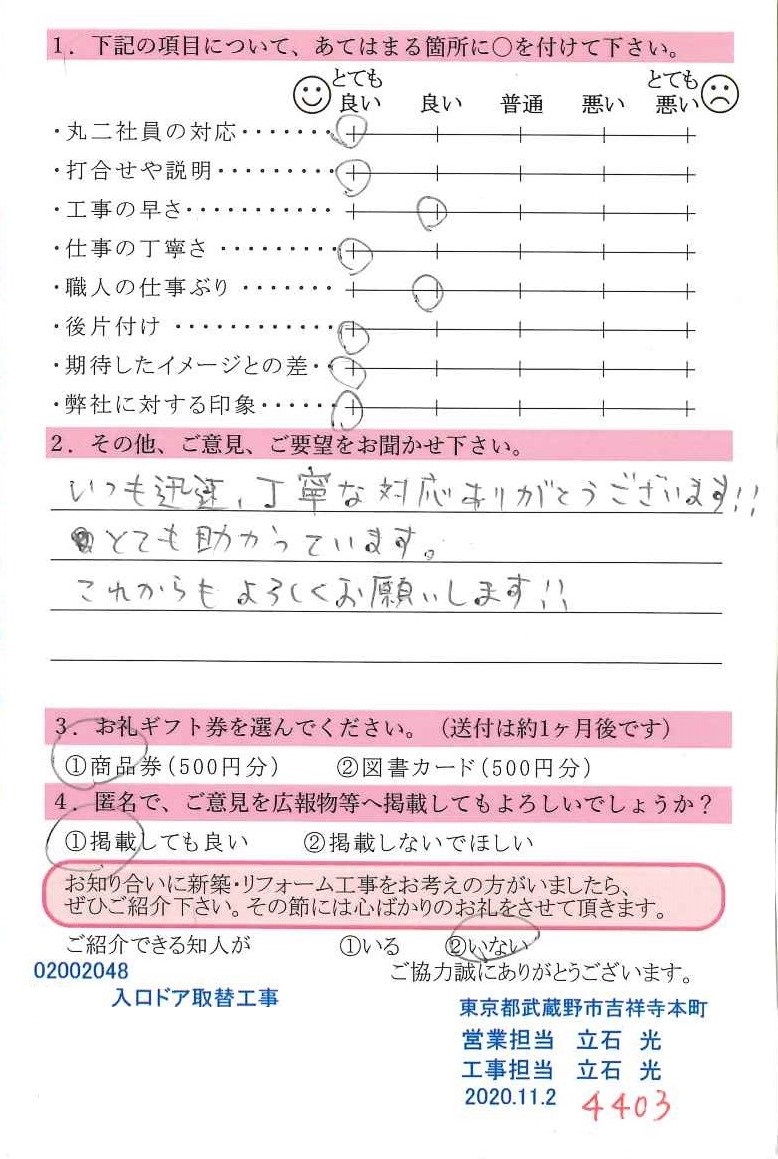 1．下記の項目について、あてはまる箇所に○を付けて下さい。
とても良い 良い 普通 悪い とても悪い
・丸二社員の対応・・・・・・・
・打合せや説明・・・・・・・・・
・工事の早さ・・・・・・・・・・・
・仕事の丁寧さ ・・・・・・・・・
・職人の仕事ぶり ・・・・・・・
・後片付け ・・・・・・・・・・・・
・期待したイメージとの差・・
・弊社に対する印象・・・・・・
2．その他、ご意見、ご要望をお聞かせ下さい。
いつも迅速、丁寧な対応ありがとうございます!!
とても助かっています。
これからもよろしくお願いします!!
3．お礼ギフト券を選んでください。（送付は約1ヶ月後です）
①商品券(500円分) ②図書カード(500円分)
4．匿名で、ご意見を広報物等へ掲載してもよろしいでしょうか？
①掲載しても良い ②掲載しないでほしい
お知り合いに新築・リフォーム工事をお考えの方がいましたら、
ぜひご紹介下さい。その節には心ばかりのお礼をさせて頂きます。
ご紹介できる知人が ①いる ②いない
ご協力誠にありがとうございます。
02002048
入口ドア取替工事
東京都武蔵野市吉祥寺本町
営業担当 立石 光
工事担当 立石 光
2020.11.2
4403